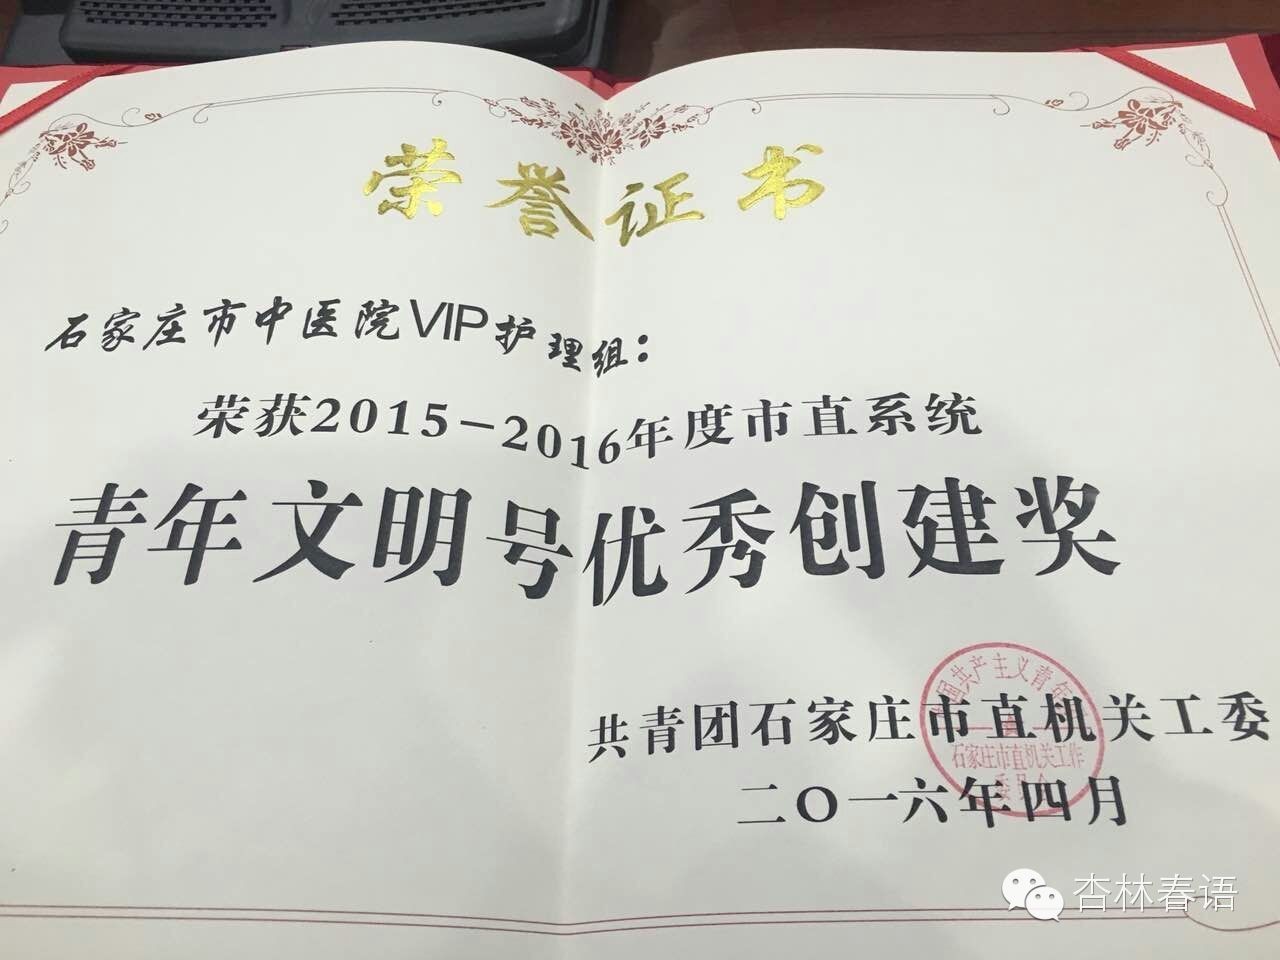 荣誉证书
石家庄市中医院VIP护理组：
荣获2015-2016年度市直系统
青年文明号优秀创建奖
共青团石家庄市直机关工委
二〇一六年四月
国共产主义青年
石家庄市直机关工作
委员会
杏林春语